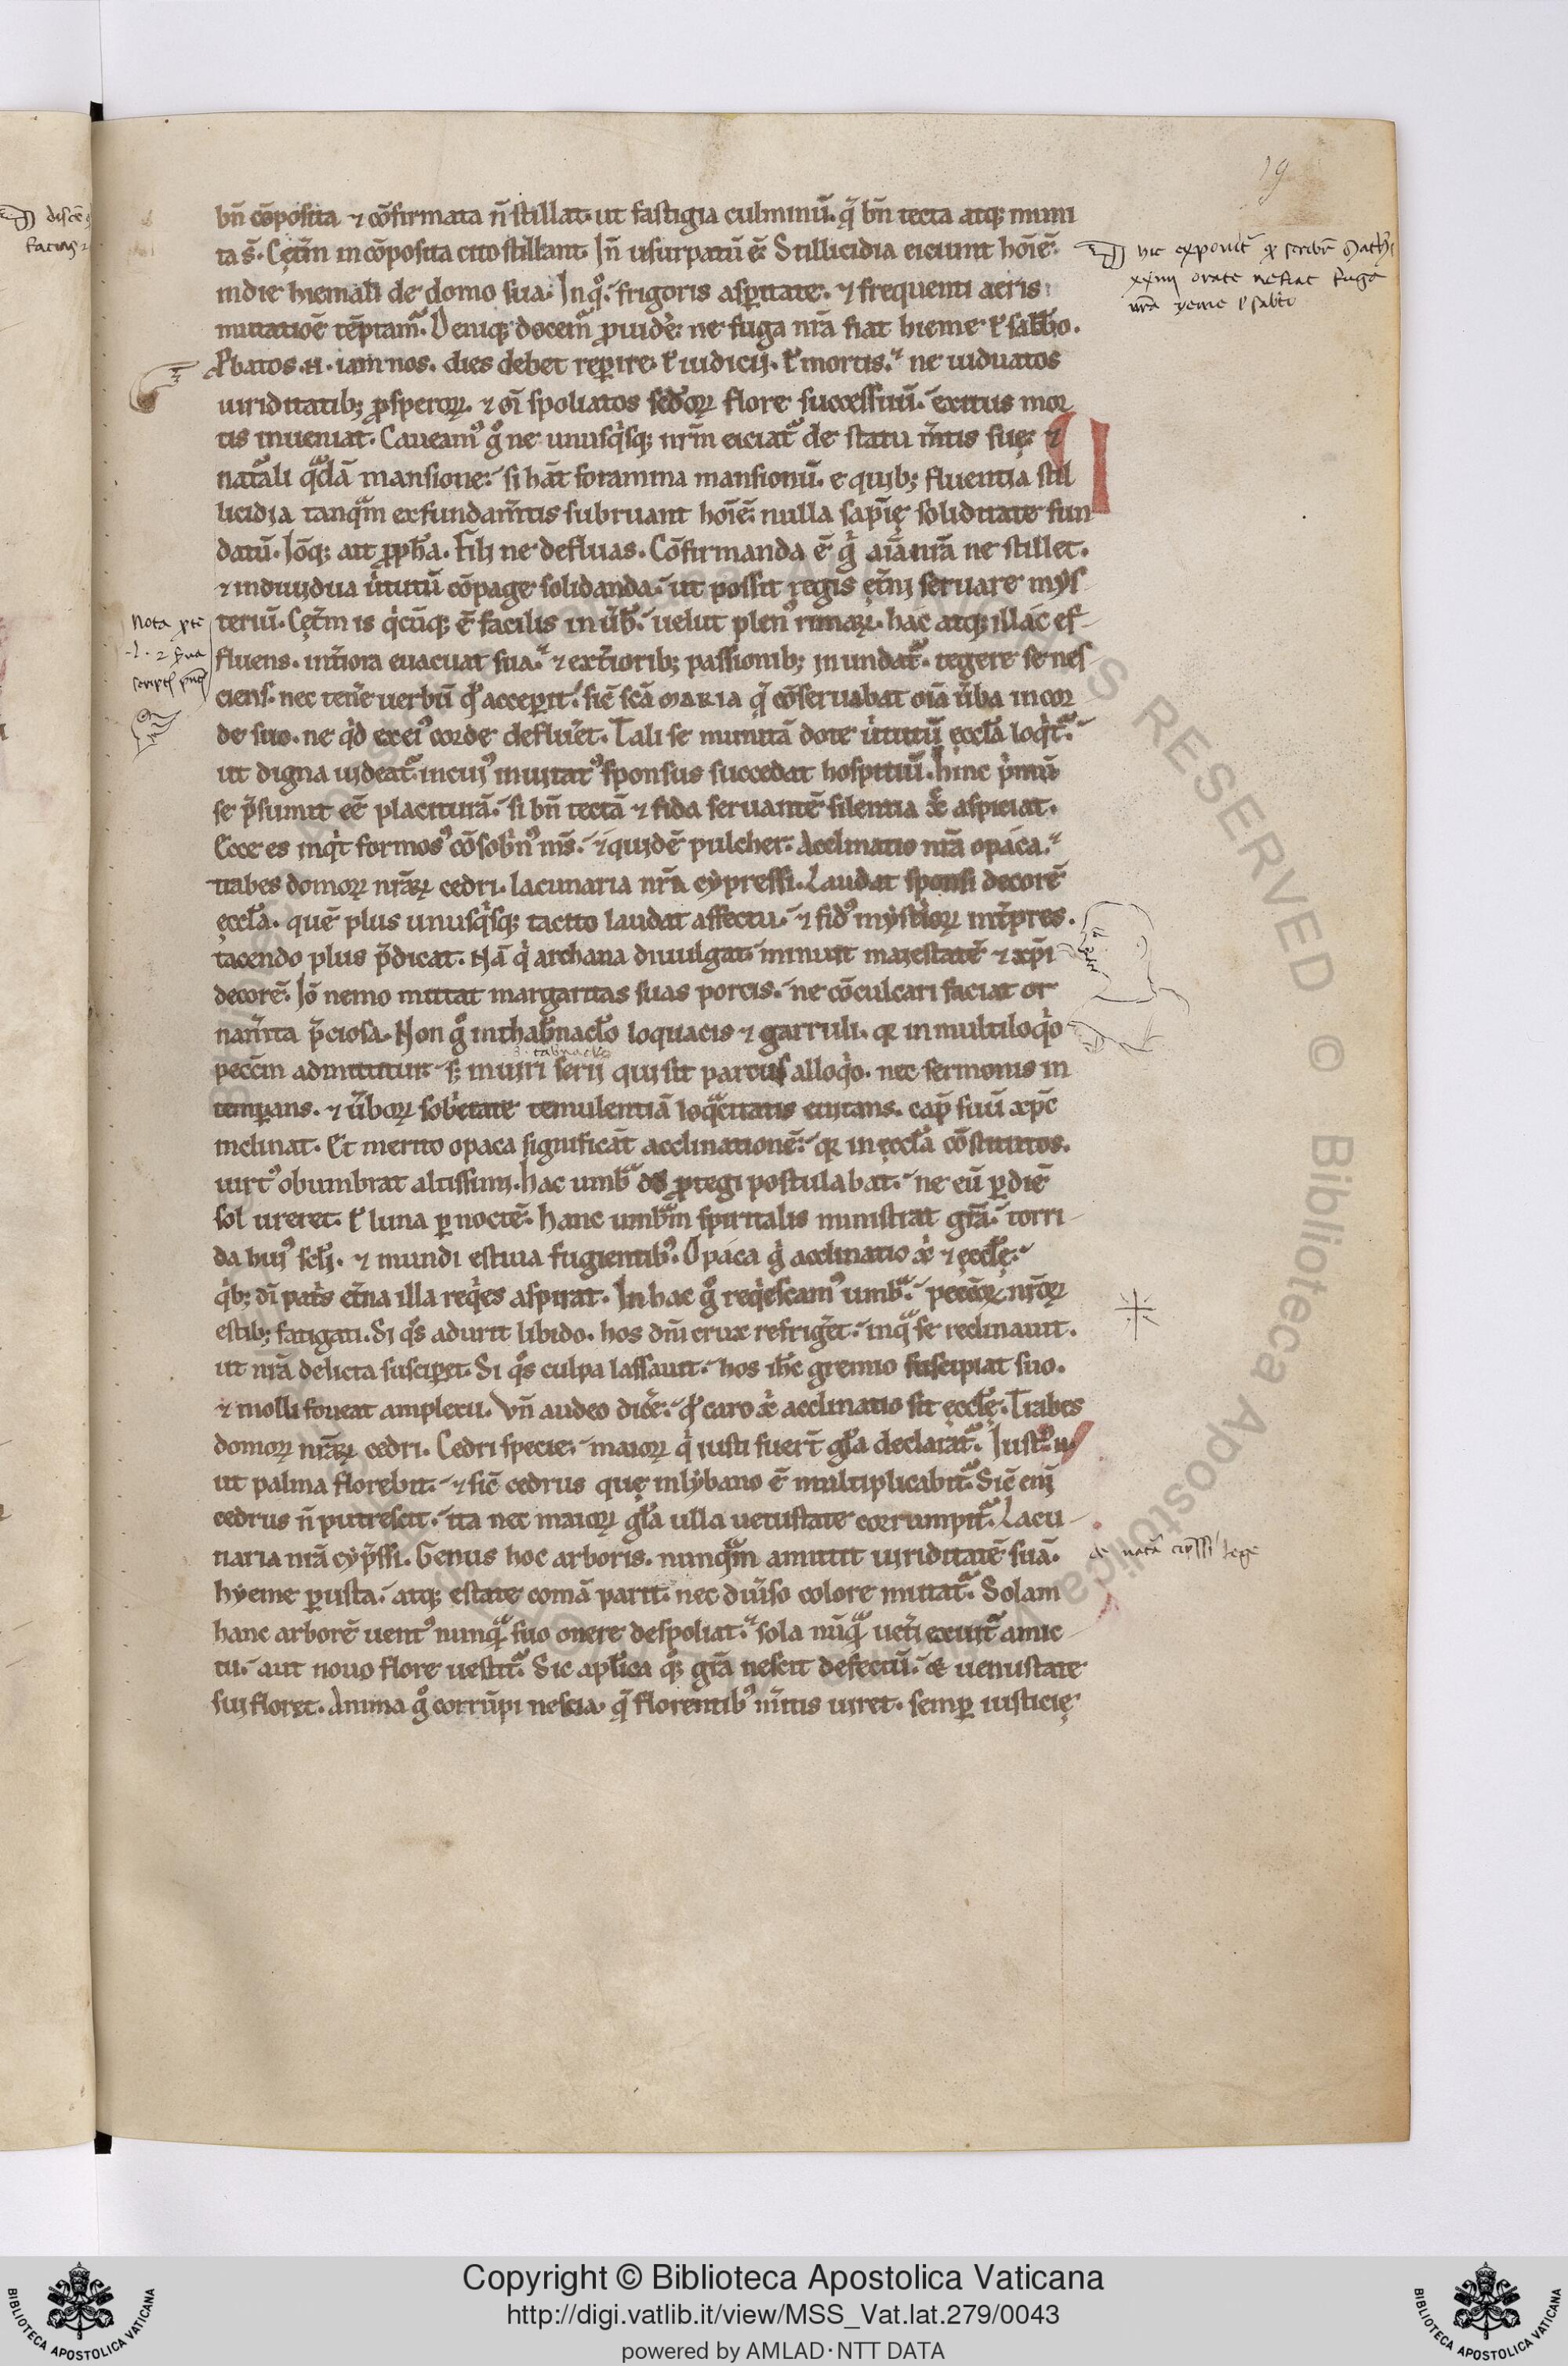 19
bn̄ cōposita ⁊ cōfirmata n̄ stillat. ut fastigia culminū. q̄ bn̄ tecta atq; muni
ta s̄. Cęt̄m incōposita cito stillant. Jn̄ usurpatū ē. Stillicidia eiciunt hoīē.
indie hiemali de domo sua. Jn qͦ. frigoris asp̱itate. ⁊ frequenti aeris
mutatiōē tēptamᷣ. Deniq; docemᷣ ꝓuidē. ne fuga nr̄a fiat hieme ł sabb̄o.
Ꝓbatos .N. iam nos. dies debet rep̱ire. ł iudicij. ł mortis. ne uiduatos
uiriditatib; ꝓsperoꝝ. ⁊ oī spoliatos sędoꝝ flore successiuū. exitus mor
tis inueniat. Caueamꝰ gͦ ne unusqͥsq; nr̄m eiciatᷣ de statu m̄tis suę. ⁊
nat̄ali qᵃdā mansione. si hāt foramina mansionū. e quib; fluentia stil
licidia tanqᵃm ex fundam̄tis subruant hoīē. nulla sapīę soliditate fun
datū. Jōq; ait ꝓph̄a. Fili ne defluas. Cōfirmanda ē gͥ aīa nr̄a ne stillet.
⁊ indiuidua ūtutū cōpage solidanda. ut possit regis et̄ni seruare mys
teriū. Cęt̄m is qͥcūq; ē facilis in ūb̄. uelut plenꝰ rimaꝝ. hac atq; illac ef-
fluens. int̄iora euacuat sua. ⁊ ext̄iorib; passionib; inundatᷣ. tegere se nes
ciens. nec ten̄e uerbū qᵈ accep̱it. sic̄ sc̄a MARIA q̄ cōseruabat oīa ūba in cor
de suo. ne qͥd ex eiꝰ corde deflueret. Tali se munitā dote ūtutū ęccl̄a loqͥtᷣ.
ut digna uideatᷣ. in cuiꝰ inuitatꝰ sponsus succedat hospitiū. hinc pͥmū
se p̄sumit eē placiturā. si bn̄ tectā ⁊ fida seruantē silentia xͨ aspiciat.
Ecce es inqͥt formosꝰ cōsobͥnꝰ ms̄. ⁊ quidē pulcher. Acclinatio nr̄a opaca.
trabes domoꝝ nr̄aꝝ cedri. lacunaria nr̄a cypressi. Laudat sponsi decorē
ęccl̄a. quē plus unusqͥsq; tacito laudat affectu. ⁊ fidꝰ mysťioꝝ int̄pres.
tacendo plus p̄dicat. Nā qͥ archana diuulgat. minuit maiestatē ⁊ xp̄i
decorē. Jō nemo mittat margaritas suas porcis. ne cōculcari faciat or
nam̄ta p̄ciosa. Non gͦ in thab̄nacl̄o loquacis ⁊ garruli. qr in multiloqͥo
.s. tab̄nac̄lo
pecc̄m admittitur. s; in uiri serii qui sit parcus alloqͥo. nec sermonis in
temp̱ans. ⁊ ūboꝝ sobͥetate temulentiā loqᵃcitatis euitans. cap̄ suū xp̄c
inclinat. Et merito opaca significāt acclinationē. qr in ęccl̄a cōstitutos.
uirtꝰ obumbrat altissimi. hac umbᵃ dd̄ ꝓtegi postulabat. ne eū p̱ diē
sol ureret. ł luna p̱ noctē. hanc umbᵃm spiritalis ministrat gr̄a. torri-
da huiꝰ sc̄li. ⁊ mundi estiua fugientibꝰ. Opaca gͥ acclinatio xͥ ⁊ ęccl̄ę.
qͥb; dī patͥs et̄na illa reqͥes aspirat. Jn hac gͦ reqͥescamꝰ umbᵃ. peccōꝝ nr̄oꝝ
estib; fatigati. Si qͦs adurit libido. hos dn̄i crux refriget̄. in qᵃ se reclinauit.
ut nr̄a delicta suscip̱et. Si qͦs culpa lassauit. hos ih̄c gremio suscipiat suo.
⁊ molli foueat amplexu. Vn̄ audeo dic̄e. qᵈ caro xͥ acclinatio sit ęccl̄ę. Trabes
domoꝝ nr̄aꝝ cedri. Cedri specie. maioꝝ qͥ iusti fuer̄t gl̄a declaratᷣ. Justꝰ .n.
ut palma florebit. ⁊ sic̄ cedrus quę in lybano ē multiplicabitᷣ. Sic̄ eni
cedrus n̄ putrescit. ita nec maioꝝ gl̄a ulla uetustate corrumpitᷣ. Lacu-
naria nr̄a cyp̄ssi. Genus hoc arboris. nunqᵃm amittit uiriditatē suā.
hyeme p̱usta. atq; estate comā parit. nec diūso colore mutatᷣ. Solam
hanc arborē uentꝰ nunqᵃ suo onere despoliat. sola nūqᵃ uet̄i exuitᷣ amic-
tu. aut nouo flore uestitᷣ. Sic apl̄ica q; gr̄a nescit defectū. & uenustate
sui floret. Anima gͦ corrūpi nescia. q̄ florentibꝰ m̄tis uiret. semp̱ iusticię
hic exponit̄ scribr̄ Math'
xxiiij orate ne fiat fuga
vr̄a yeme ł sabb̄o
Nota
de nat̄a cip̄ssi lege
RESERVED © Biblioteca Apostolica
Copyright © Biblioteca Apostolica Vaticana
http://digi.vatlib.it/view/MSS_Vat.lat.279/0043
powered by AMLAD·NTT DATA
BIBLIOTECA APOSTOLICA VATICANA
BIBLIOTECA APOSTOLICA VATICANA